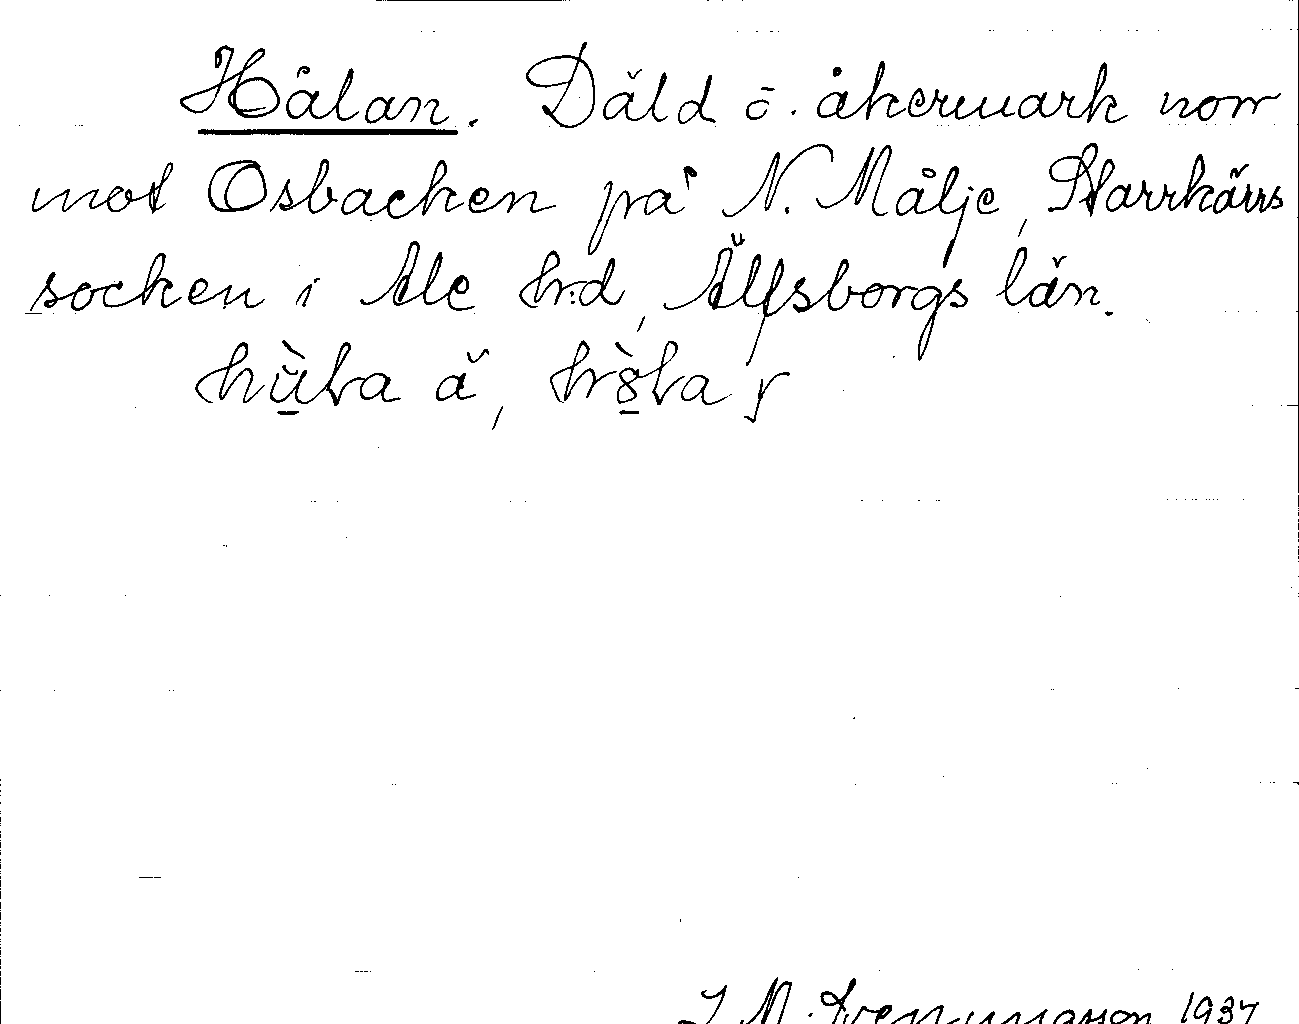 Hålan. Däld o. åkermark norr
mot Osbacken på N. Målje, Starrkärrs
socken i Ale hrd, Älfsborgs län.
1937